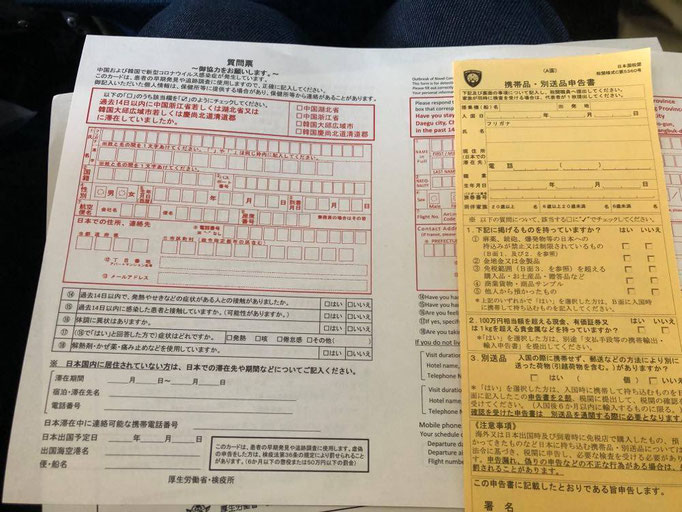 質問票
~御協力をお願いします。~
中国および韓国で新型コロナウイルス感染症が発生しています。
このカードは、患者の早期発見や追跡調査に使用しますので、正確に記入してください。
御記入いただいた個人情報は、保健所等に提供する場合があり、保健所等から連絡があることがあります。
以下の「□」のうち該当欄を「☑」のようにチェックしてください。
過去14日以内に中国浙江省若しくは湖北省又は
韓国大邱広域市若しくは慶尚北道清道郡
に滞在していましたか。
□中国湖北省
□中国浙江省
□韓国大邱広域市
□韓国慶尚北道清道郡
氏名
国籍
性別
□男 □女
年 月 日
航空便名
会社名
便名
座席番号
日本での住所、連絡先
都道府県
市区町村
丁目番地
電話番号
メールアドレス
⑭ 過去14日以内で、発熱やせきなどの症状がある人との接触がありましたか。 □はい □いいえ
⑮ 過去14日以内に感染した患者と接触していますか。(可能性がありますか。) □はい □いいえ
⑯ 体調に異状はありますか。 □はい □いいえ
⑰ (⑯で「はい」と回答した方で)症状はどれですか。 □発熱 □咳 □倦怠感 □その他( )
⑱ 解熱剤・かぜ薬・痛み止めなどを使用していますか。 □はい □いいえ
※ 日本国内に居住されていない方は、日本での滞在先や期間などについてご記入ください。
滞在期間 月 日~ 月 日
宿泊・滞在先名
電話番号
日本滞在中に連絡可能な携帯電話番号
日本出国予定日 年 月 日
出国海空港名
便・船名
このカードは、患者の早期発見や追跡調査に使用します。虚偽
の申告をした方は、検疫法第36条の規定により罰せられることが
あります。(6か月以下の懲役または50万円以下の罰金)
厚生労働省・検疫所
Outbreak of Novel Co
Please respond
Have you stay
Daegu city, C
in the past 14
FIRST / M
Flight No.
Contact Addres
PREFECTUR
⑭Have you ha
⑮Have you ha
⑯Are you feeli
⑰If yes, specify
⑱Are you takin
If you do not live
Visit duration
Hotel name,
Telephone N
Mobile phone
Your schedule d
Departure da
Departure
Flight number
(A面)
日本国税関
税関様式C第5360号
携帯品・別送品申告書
下記及び裏面の事項について記入し、税関職員へ提出してください。
家族が同時に検査を受ける場合は、代表者が1枚提出してください。
搭乗機(船)名
出発地
入国日 年 月 日
フリガナ
氏名
現住所
(日本での滞在先)
電話 ( )
職業
生年月日 年 月 日
旅券番号
同伴家族 20歳以上 名 6歳以上20歳未満 名 6歳未満 名
※ 以下の質問について、該当する□に"✓"でチェックしてください。
1.下記に掲げるものを持っていますか? はい いいえ
① 麻薬、銃砲、爆発物等の日本への
持込みが禁止又は制限されているもの
(B面1.及び2.を参照)
② 金地金又は金製品
③ 免税範囲(B面3.を参照)を超える
購入品・お土産品・贈答品など
④ 商業貨物・商品サンプル
⑤ 他人から預かったもの
*上記のいずれかで「はい」を選択した方は、B面に入国時
に携帯して持ち込むものを記入してください。
2.100万円相当額を超える現金、有価証券又 はい いいえ
は1kgを超える貴金属などを持っていますか?
*「はい」を選択した方は、別途「支払手段等の携帯輸出・
輸入申告書」を提出してください。
3.別送品 入国の際に携帯せず、郵送などの方法により別に
送った荷物(引越荷物を含む。)がありますか?
はい ( 個) いいえ
*「はい」を選択した方は、入国時に携帯して持ち込むものをB
面に記入したこの申告書を2部、税関に提出して、税関の確認を
受けてください。(入国後6か月以内に輸入するものに限る。)
確認を受けた申告書は、別送品を通関する際に必要となります。
《注意事項》
海外又は日本出国時及び到着時に免税店で購入したもの、預
かってきたものなど日本に持ち込む携帯品・別送品については、
法令に基づき、税関に申告し、必要な検査を受ける必要がありま
す。申告漏れ、偽りの申告などの不正な行為がある場合は、処
罰されることがあります。
この申告書に記載したとおりである旨申告します。
署名